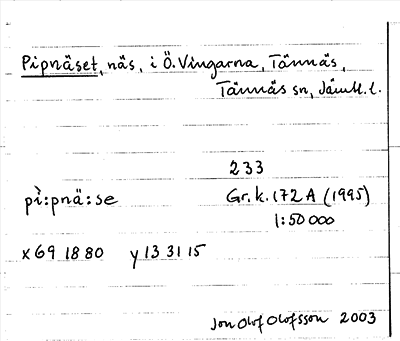 Pipnäset, näs, i Ö. Vingarna, Tännäs,
Tännäs sn, Jämtl. l.
233
pì:pnä:se
Gr. k. 172 A (1995)
1:50 000
x 69 18 80 y 13 31 15
Jon Olof Olofsson 2003